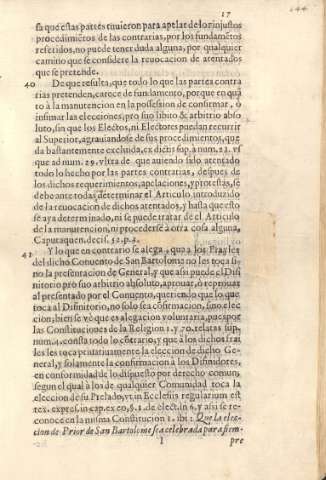 17
244
sa que estas partes tuuieron para apelar de los injustos
procedimiẽtos de las contrarias, por los fundamẽtos
referidos, no puede tener duda alguna, por qualquier
camino que se considere la reuocacion de atentados
que se pretende.
40 De que resulta, que todo lo que las partes contra
rias pretenden, carece de fundamento, por que en quã
to à la manutencion en la possession de confirmar, ò
infirmar las elecciones, pro suo libito & arbitrio abso
luto, sin que los Electos, ni Electores puedan recurrir
al Superior, agrauiandose de sus procedimientos, que
da bastantemente excluida, ex dictis sup. à num. 23. vs
que ad num. 29. vltra de que auiendo sido atentado
todo lo hecho por las partes contrarias, despues de
los dichos requerimientos, apelaciones, y protestas, se
debe ante todas determinar el Articulo introduzido
de la reuocacion de dichos atentados, y hasta que esto
se aya determinado, ni se puede tratar de el Articulo
de la manutencion, ni procederse à otra cosa alguna,
Caputaquen. decis. 52. p. 3.
41 Y lo que en contrario se alega, que à los Frayles
del dicho Conuento de San Bartolome no les toca si
no la presentacion de General, y que assi puede el Difi
nitorio pro suo arbitrio absoluto, aprouar, ò reprouar
al presentado por el Conuento, queriendo que lo que
toca al Difinitorio, no solo sea confirmacion, sino elec
cion; bien se vè que es alegacion voluntaria, pues por
las Constituciones de la Religion 1. y 70. relatas sup.
num. 4. consta todo lo cõtrario, y que à los dichos fray
les les toca priuatiuamente la eleccion de dicho Ge-
neral, y solamente la confirmacion à los Difinidores,
en conformidad de lo dispuesto por derecho comun,
segun el qual à los de qualquier Comunidad toca la
eleccion de su Prelado, vt in Ecclesiis regularium est
tex. expres. in cap. ex eo, §. 1. de elect. in 6. y assi se re-
conoce en la misma Constitucion 1. ibi: Que la elec-
cion de Prior de San Bartolome sea celebrada para siem-
I
pre